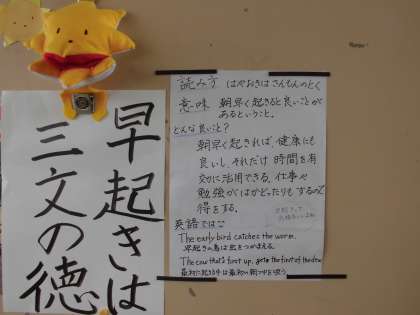 早起きは
三文の徳
読み方 はやおきはさんもんのとく
意味 朝早く起きると良いことが
あるということ。
どんな良いこと？
朝早く起きれば、健康にも
良いし、それだけ時間を有
効に活用できる。仕事や
勉強がはかどったりもするので
得をする。
英語では
The early bird catches the worm.
早起きの鳥は虫をつかまえる。
The cow that's first up, gets the first of the dew
最初に起きる牛は最初の朝つゆを吸う